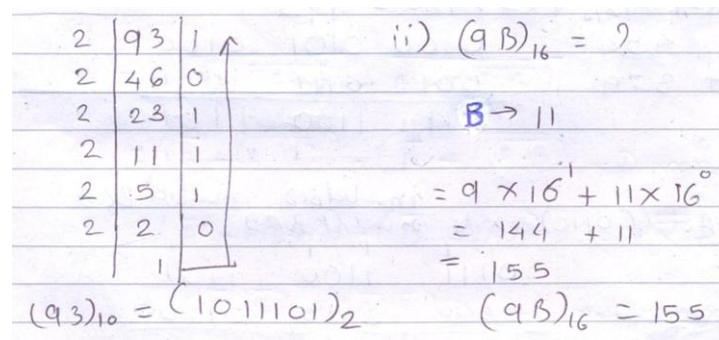 2 93 1
2 46 0
2 23 1
2 11 1
2 5 1
2 2 0
1
(93)10 = (1011101)2
ii) (9B)16 = ?
B → 11
= 9 × 16¹ + 11 × 16⁰
= 144 + 11
= 155
(9B)16 = 155